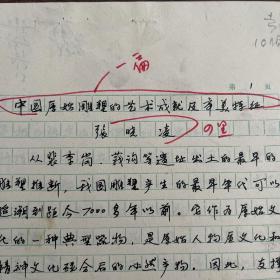 一篇
第 1 页
中国原始雕塑的艺术成就及审美特征
张晓凌
从裴李岗、莪沟等遗址出土的最早的
雕塑推断，我国雕塑产生的最早年代可以
追溯到距今7000多年以前。它作为原始文
化的一种典型器物，是原始人物质文化和
精神文化融合后的必然产物。因此，在